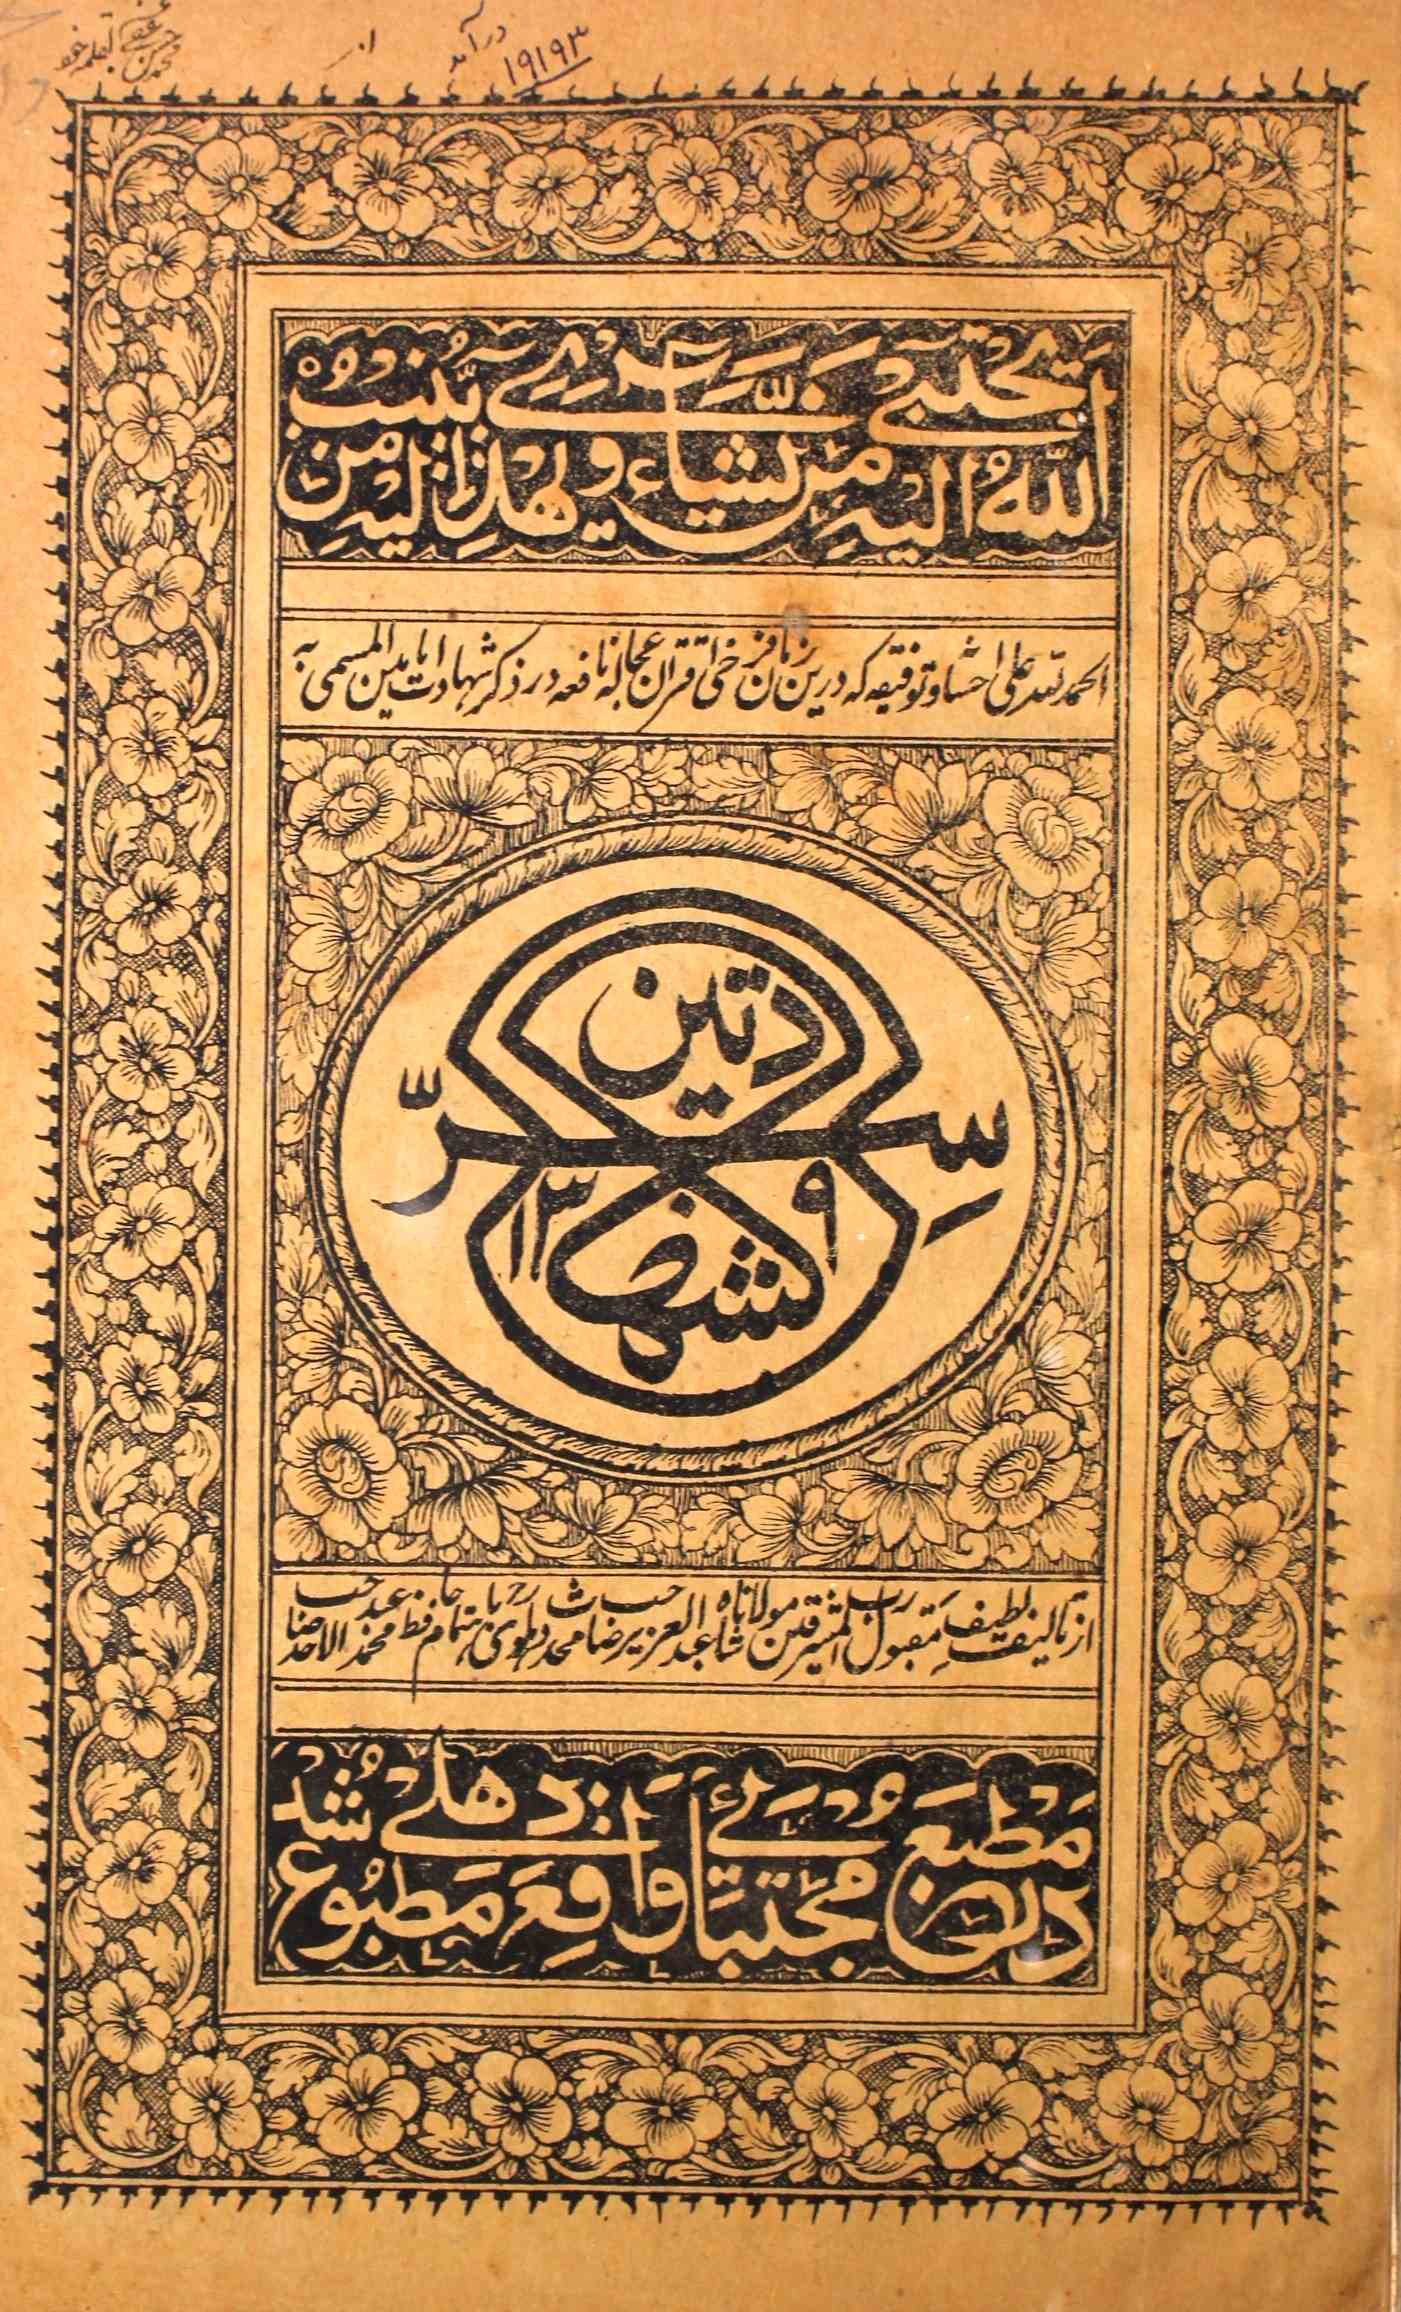 درآمد ۱۹۱۹۳
اللّٰهُ يجتبي اليه من يشاء ويهدي اليه من ينيب
الحمد لله علی احسانه وتوفیقه که درین زمان عجاله نافعه در ذکر شهادت امامین المسمی به
سرّ الشهادتین
۱۳ ۹
از تالیف لطیف مقبول رب المشرقین مولانا شاه عبد العزیز صاحب محدث دهلوی رح باهتمام حافظ محمد عبد الاحد صاحب
در مطبع مجتبائی واقع دهلی مطبوع شد